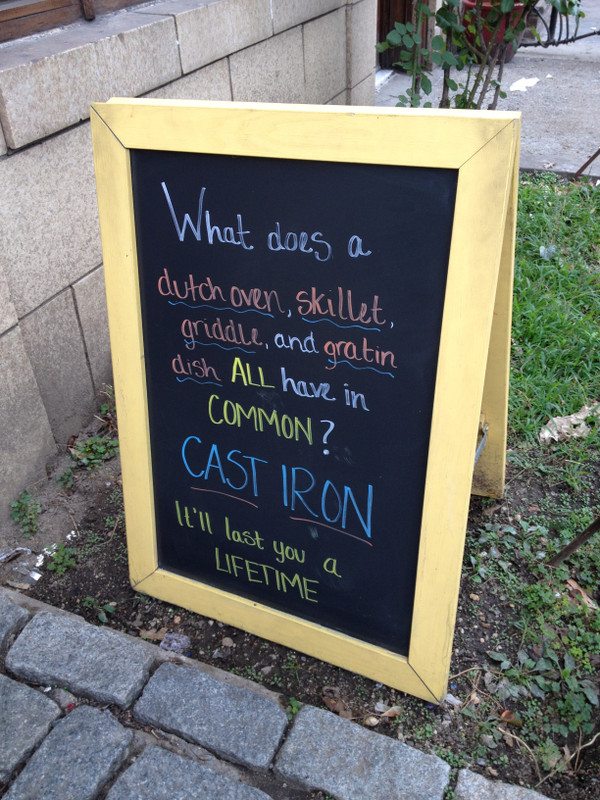 What does a
dutch oven, skillet,
griddle, and gratin
dish ALL have in
COMMON?
CAST IRON
It'll last you a
LIFETIME